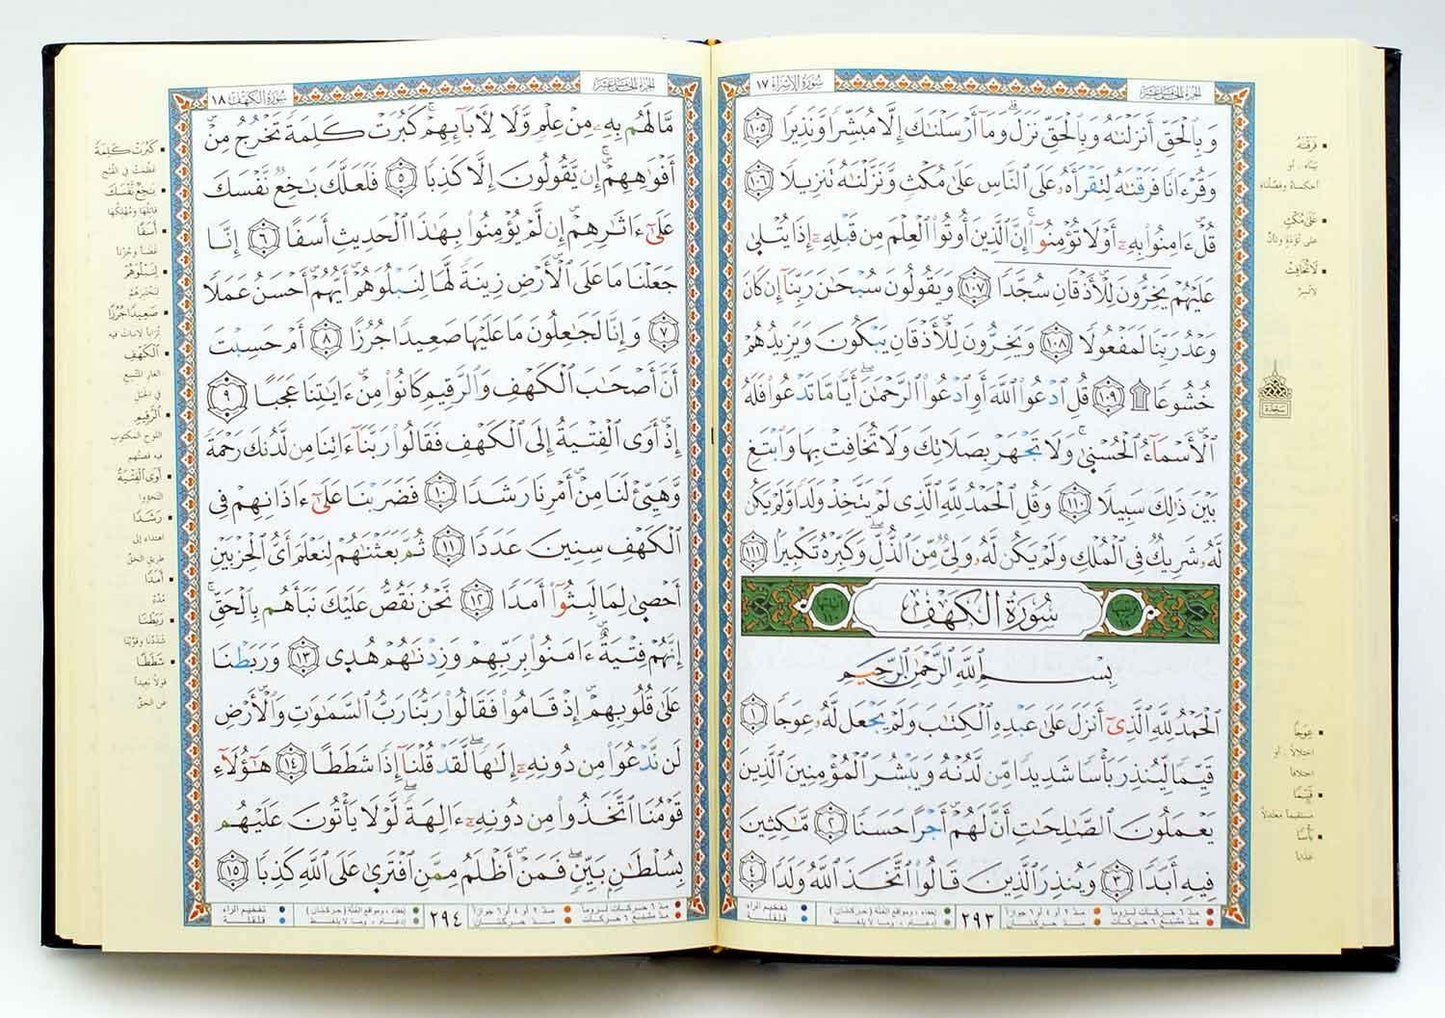 سورة الإسراء ١٧
الجزء الخامس عشر
وَبِالْحَقِّ أَنزَلْنَٰهُ وَبِالْحَقِّ نَزَلَ وَمَآ أَرْسَلْنَٰكَ إِلَّا مُبَشِّرًا وَنَذِيرًا ١٠٥
وَقُرْءَانًا فَرَقْنَٰهُ لِتَقْرَأَهُۥ عَلَى النَّاسِ عَلَىٰ مُكْثٍ وَنَزَّلْنَٰهُ تَنزِيلًا ١٠٦
قُلْ ءَامِنُوا۟ بِهِۦٓ أَوْ لَا تُؤْمِنُوٓا۟ إِنَّ الَّذِينَ أُوتُوا۟ الْعِلْمَ مِن قَبْلِهِۦٓ إِذَا يُتْلَىٰ
عَلَيْهِمْ يَخِرُّونَ لِلْأَذْقَانِ سُجَّدًا ١٠٧ وَيَقُولُونَ سُبْحَٰنَ رَبِّنَآ إِن كَانَ
وَعْدُ رَبِّنَا لَمَفْعُولًا ١٠٨ وَيَخِرُّونَ لِلْأَذْقَانِ يَبْكُونَ وَيَزِيدُهُمْ
خُشُوعًا ۩ ١٠٩ قُلِ ادْعُوا۟ اللَّهَ أَوِ ادْعُوا۟ الرَّحْمَٰنَ أَيًّا مَّا تَدْعُوا۟ فَلَهُ
الْأَسْمَآءُ الْحُسْنَىٰ وَلَا تَجْهَرْ بِصَلَاتِكَ وَلَا تُخَافِتْ بِهَا وَابْتَغِ
بَيْنَ ذَٰلِكَ سَبِيلًا ١١٠ وَقُلِ الْحَمْدُ لِلَّهِ الَّذِى لَمْ يَتَّخِذْ وَلَدًا وَلَمْ يَكُن
لَّهُۥ شَرِيكٌ فِى الْمُلْكِ وَلَمْ يَكُن لَّهُۥ وَلِىٌّ مِّنَ الذُّلِّ وَكَبِّرْهُ تَكْبِيرًا ١١١
سُورَةُ الكَهْفِ
بِسْمِ اللَّهِ الرَّحْمَٰنِ الرَّحِيمِ
الْحَمْدُ لِلَّهِ الَّذِىٓ أَنزَلَ عَلَىٰ عَبْدِهِ الْكِتَٰبَ وَلَمْ يَجْعَل لَّهُۥ عِوَجًا ١
قَيِّمًا لِّيُنذِرَ بَأْسًا شَدِيدًا مِّن لَّدُنْهُ وَيُبَشِّرَ الْمُؤْمِنِينَ الَّذِينَ
يَعْمَلُونَ الصَّٰلِحَٰتِ أَنَّ لَهُمْ أَجْرًا حَسَنًا ٢ مَّٰكِثِينَ
فِيهِ أَبَدًا ٣ وَيُنذِرَ الَّذِينَ قَالُوا۟ اتَّخَذَ اللَّهُ وَلَدًا ٤
٢٩٣
فَرَقْنَٰهُ
عَلَىٰ مُكْثٍ
لَا تُخَافِتْ
سجدة
عِوَجًا
قَيِّمًا
مستقيماً معتدلاً
بَأْسًا
عذاباً
سورة الكهف ١٨
الجزء الخامس عشر
مَّا لَهُم بِهِۦ مِنْ عِلْمٍ وَلَا لِءَابَآئِهِمْ كَبُرَتْ كَلِمَةً تَخْرُجُ مِنْ
أَفْوَٰهِهِمْ إِن يَقُولُونَ إِلَّا كَذِبًا ٥ فَلَعَلَّكَ بَٰخِعٌ نَّفْسَكَ
عَلَىٰٓ ءَاثَٰرِهِمْ إِن لَّمْ يُؤْمِنُوا۟ بِهَٰذَا الْحَدِيثِ أَسَفًا ٦ إِنَّا
جَعَلْنَا مَا عَلَى الْأَرْضِ زِينَةً لَّهَا لِنَبْلُوَهُمْ أَيُّهُمْ أَحْسَنُ عَمَلًا
٧ وَإِنَّا لَجَٰعِلُونَ مَا عَلَيْهَا صَعِيدًا جُرُزًا ٨ أَمْ حَسِبْتَ
أَنَّ أَصْحَٰبَ الْكَهْفِ وَالرَّقِيمِ كَانُوا۟ مِنْ ءَايَٰتِنَا عَجَبًا ٩
إِذْ أَوَى الْفِتْيَةُ إِلَى الْكَهْفِ فَقَالُوا۟ رَبَّنَآ ءَاتِنَا مِن لَّدُنكَ رَحْمَةً
وَهَيِّئْ لَنَا مِنْ أَمْرِنَا رَشَدًا ١٠ فَضَرَبْنَا عَلَىٰٓ ءَاذَانِهِمْ فِى
الْكَهْفِ سِنِينَ عَدَدًا ١١ ثُمَّ بَعَثْنَٰهُمْ لِنَعْلَمَ أَىُّ الْحِزْبَيْنِ
أَحْصَىٰ لِمَا لَبِثُوٓا۟ أَمَدًا ١٢ نَّحْنُ نَقُصُّ عَلَيْكَ نَبَأَهُم بِالْحَقِّ
إِنَّهُمْ فِتْيَةٌ ءَامَنُوا۟ بِرَبِّهِمْ وَزِدْنَٰهُمْ هُدًى ١٣ وَرَبَطْنَا
عَلَىٰ قُلُوبِهِمْ إِذْ قَامُوا۟ فَقَالُوا۟ رَبُّنَا رَبُّ السَّمَٰوَٰتِ وَالْأَرْضِ
لَن نَّدْعُوَا۟ مِن دُونِهِۦٓ إِلَٰهًا لَّقَدْ قُلْنَآ إِذًا شَطَطًا ١٤ هَٰٓؤُلَآءِ
قَوْمُنَا اتَّخَذُوا۟ مِن دُونِهِۦٓ ءَالِهَةً لَّوْلَا يَأْتُونَ عَلَيْهِم
بِسُلْطَٰنٍ بَيِّنٍ فَمَنْ أَظْلَمُ مِمَّنِ افْتَرَىٰ عَلَى اللَّهِ كَذِبًا ١٥
٢٩٤
كَبُرَتْ كَلِمَةً
بَٰخِعٌ نَّفْسَكَ
أَسَفًا
لِنَبْلُوَهُمْ
صَعِيدًا جُرُزًا
الْكَهْفِ
الرَّقِيمِ
اللوح المكتوب
أَوَى الْفِتْيَةُ
رَشَدًا
أَمَدًا
رَبَطْنَا
شَطَطًا